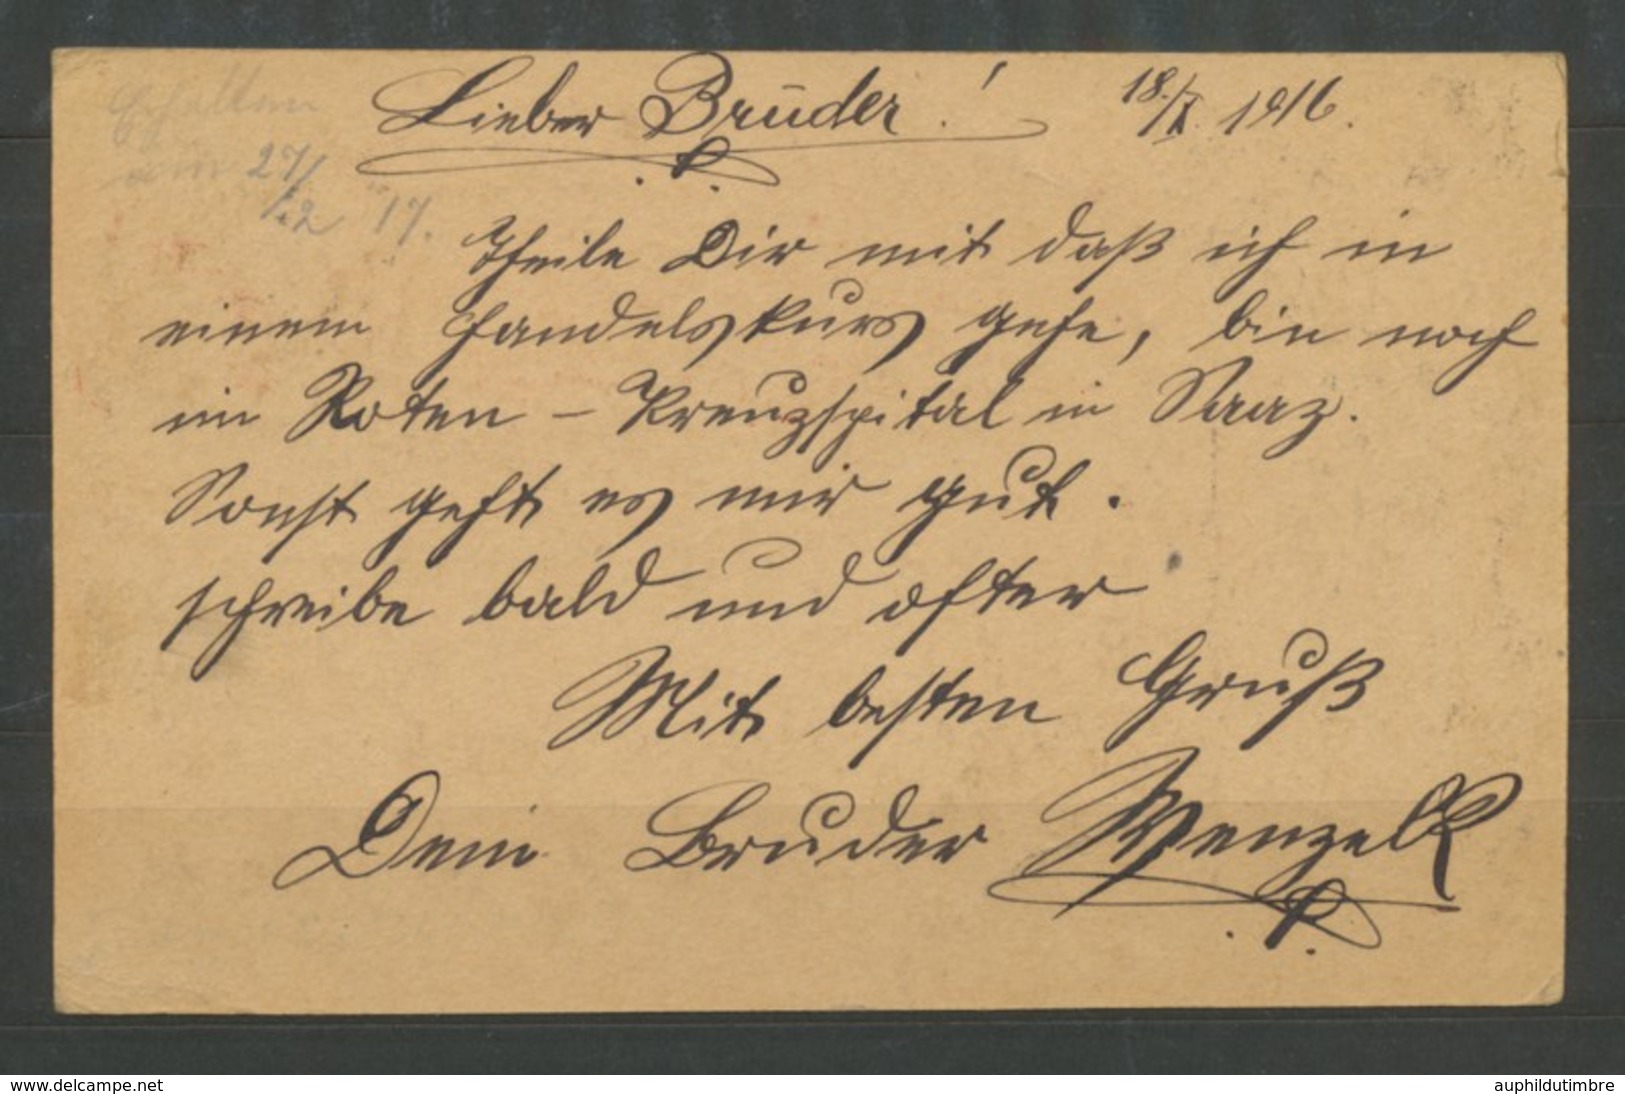 Erhalten
am 27/
12 17.
Lieber Bruder! 18./X. 1916.
Theile Dir mit daß ich in
einem Handelskurs gehe, bin noch
im Roten-Kreuzspital in Saaz.
Sonst geht es mir gut.
schreibe bald und öfter
Mit besten Gruß
Dein Bruder Wenzel
www.delcampe.net
auphildutimbre